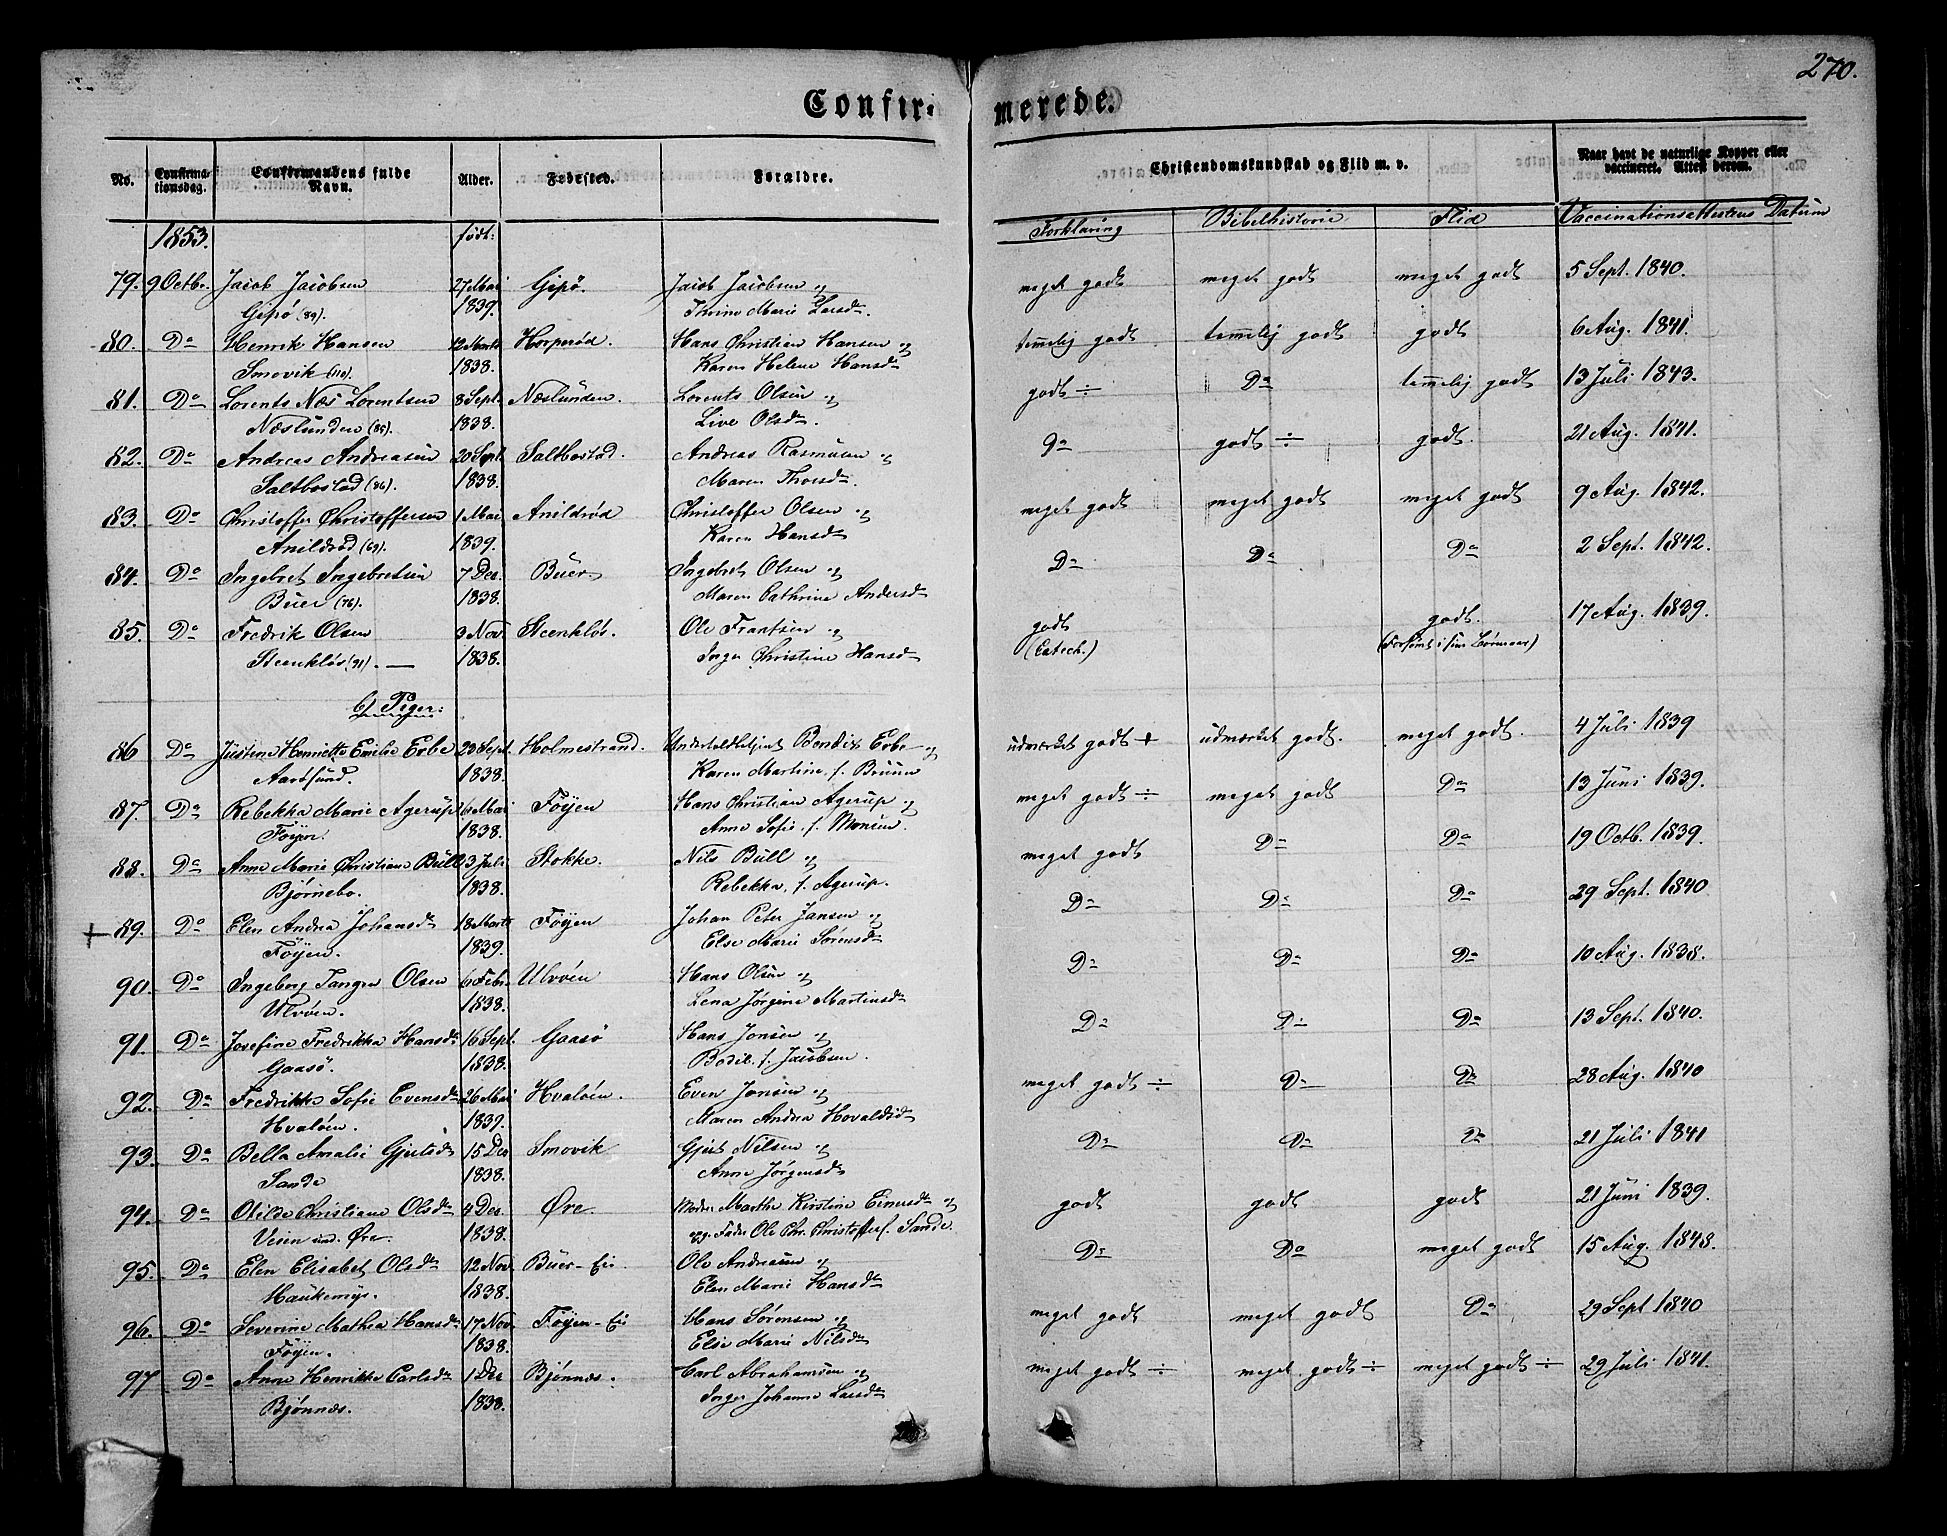 270.
Confir- merede.
No. Confirmationsdag. Confirmandens fulde Navn. Alder. Fødested. Forældre. Christendomskundskab og Flid m. v. Naar havt de naturlige Kopper eller vaccineret. Attest derom.
1853. født: Forklaring Bibelhistorie Flid Vaccinationsattestens Datum
79. 9 Octbr. Jacob Jacobsen 27 Mai Gipø. Jacob Jacobsen og meget godt meget godt meget godt 5 Sept. 1840.
Gipø (89) 1839. Thrine Marie Larsd.
80. Do Henrik Hansen 12 Marts Horperød. Hans Christian Hansen og temmelig godt temmelig godt godt 6 Aug. 1841.
Smovik (110). 1838. Karen Helene Hansd
81. Do Lorents Næs Lorentsen 8 Sept. Næslunden. Lorents Olsen og godt ÷ Do temmelig godt 13 Juli 1843.
Næslunden (85). 1838. Live Olsd.
82. Do Andreas Andreasen 20 Sept. Saltbostad. Andreas Rasmusen og Do godt ÷ godt. 21 Aug. 1841.
Saltbostad (86). 1838. Maren Thorsd.
83. Do Christoffer Christoffersen 1 Mai Anildrød Christoffer Olsen og meget godt meget godt meget godt 9 Aug. 1842.
Anildrød (69). 1839. Karen Hansd
84. Do Ingebret Ingebretsen 7 Dec. Buer. Ingebret Olsen og Do Do Do 2 Sept. 1842.
Buer (76). 1838. Maren Cathrine Andersd
85. Do Fredrik Olsen 3 Nov. Steenkløs. Ole Frantsen og godt godt. 17 Aug. 1839.
Steenkløs (91). — 1838. Inger Christine Hansd (Catech.)
b) Piger:
86 Do Justine Henriette Emilie Erbe 20 Sept. Holmestrand. Bendix Erbe og udmærket godt + udmærket godt. meget godt. 4 Juli 1839
Aarøsund. 1838. Karen Martine f. Bruun
87. Do Rebekka Marie Agerup 16 Mai Føyen Hans Christian Agerup og meget godt ÷ meget godt Do 13 Juni 1839.
Føyen. 1838. Anne Sofie f. Monsen.
88. Do Anne Marie Christiane Bull 23 Juli Stokke. Nils Bull og meget godt Do Do 19 Octb. 1839.
Bjørnebo. 1838. Rebekka, f. Agerup.
+ 89. Do Elen Andrea Johansd 18 Marts Føyen Johan Peter Jansen og Do Do Do 29 Sept. 1840
Føyen. 1839. Else Marie Sørensd
90. Do Ingeborg Tangen Olsen 6 Febr. Ulvøen Hans Olsen og Do Do Do 10 Aug. 1838.
Ulvøen. 1838. Lena Jørgine Martinsd
91. Do Josefine Fredrikka Hansd 16 Sept. Gaasø Hans Jonsen og Do Do Do 13 Sept. 1840.
Gaasø. 1838. Bodil f. Jacobsen.
92. Do Fredrikke Sofie Evensd 26 Mai Hvaløen. Even Jonsen og meget godt ÷ Do Do 28 Aug. 1840
Hvaløen. 1839. Maren Andrea Hovaldsd
93. Do Bella Amalie Gjutsd 15 Dec Smovik Gjut Nilsen og Do Do Do 21 Juli 1841
Sande 1838. Anne Jørgensd
94. Do Otilde Christiane Olsd 4 Dec. Øre. Moder Marthe Kirstine Einersd og godt godt godt 21 Juni 1839.
Veien und. Øre. 1838. opg. Fader Ole Chr. Christoffers. Sande
95. Do Elen Elisabet Olsd 12 Nov. Buer-Eie. Ole Andreasen og Do Do meget godt 15 Aug. 1843.
Haukemyr. 1838. Elen Marie Hansd
96. Do Severine Mathea Hansd 17 Nov. Føyen-Eie Hans Sørensen og meget godt meget godt Do 29 Sept 1840
Føyen. 1838. Else Marie Nilsd
97 Do Anne Henrikke Carlsd 1 Dec Bjønnæs. Carl Abrahamsen og meget godt ÷ meget godt ÷ meget godt ÷ 29 Juli 1841.
Bjønnæs. 1838. Inger Johanne Larsd